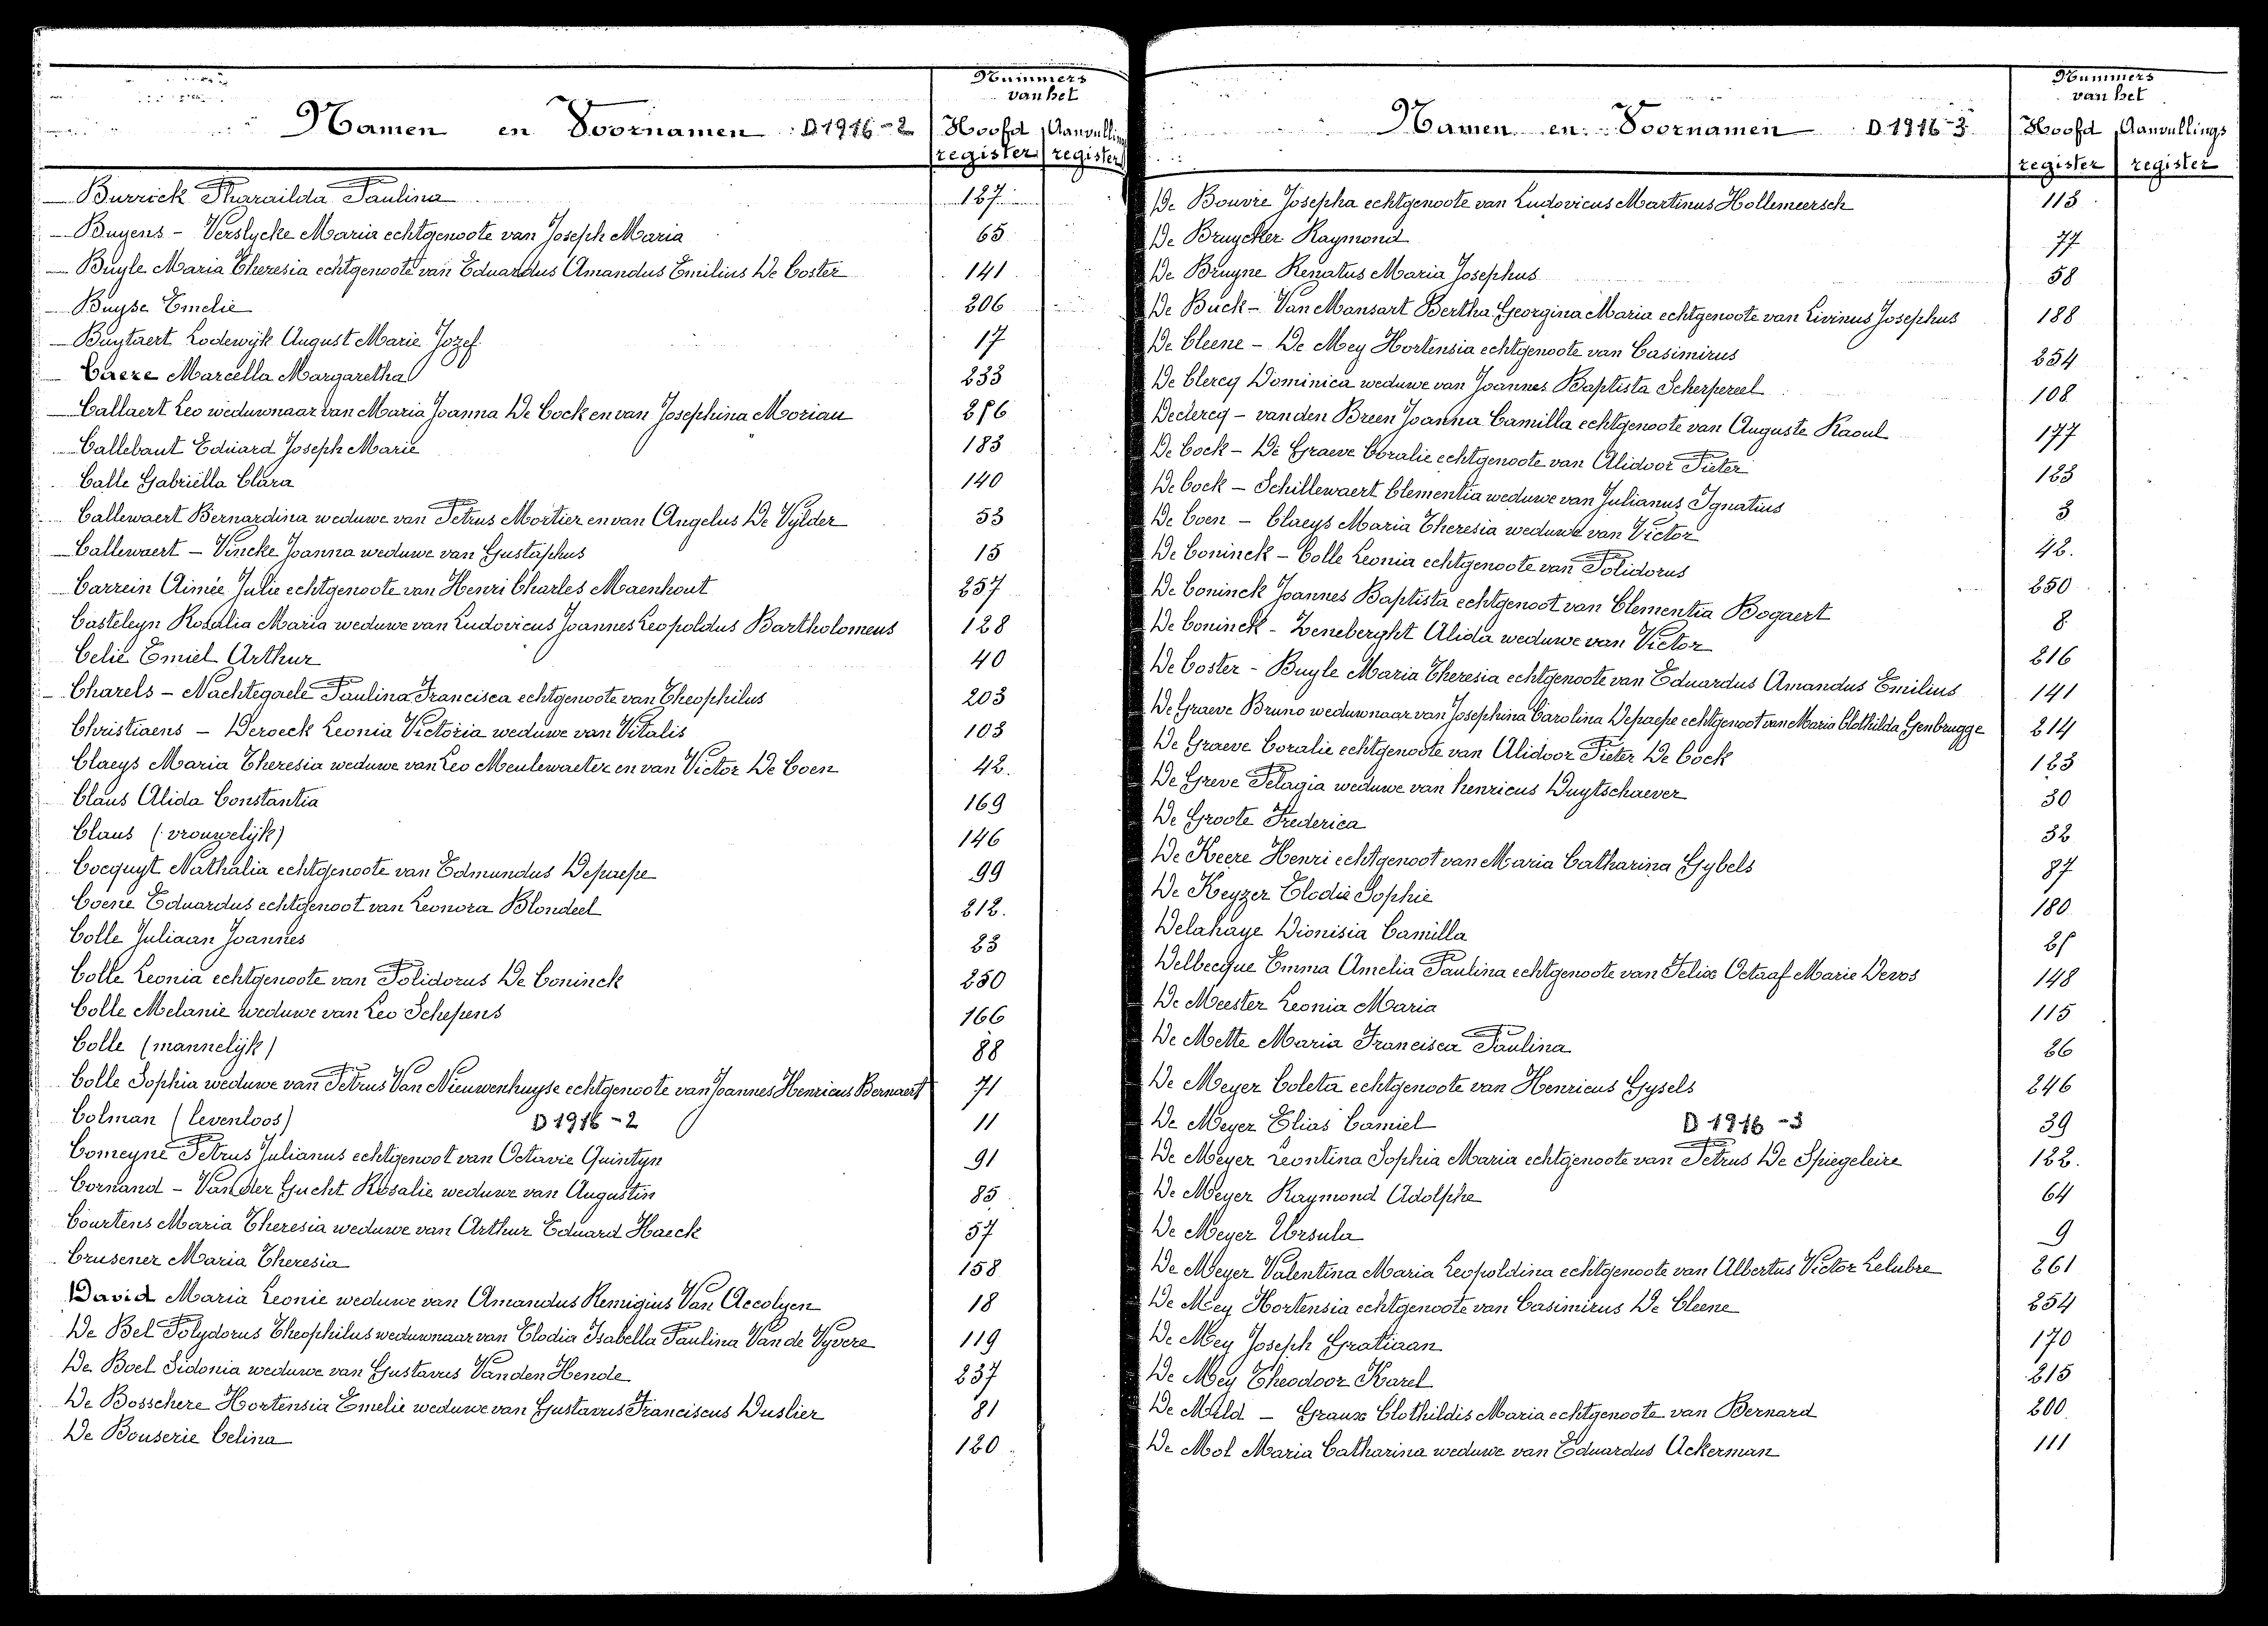 Namen en Voornamen D 1916-2
Nummers van het
Hoofd register
Aanvullings register
Burrick Pharaïlda Paulina 127
Buyens - Verslycke Maria echtgenoote van Joseph Maria 65
Buyle Maria Theresia echtgenoote van Eduardus Amandus Emilius De Coster 141
Buyse Emelie 206
Buytaert Lodewijk August Marie Jozef 17
Caere Marcella Margaretha 233
Callaert Leo weduwnaar van Maria Joanna De Cock en van Josephina Moriau 256
Callebaut Eduard Joseph Marie 183
Calle Gabriëlla Clara 140
Callewaert Bernardina weduwe van Petrus Mortier en van Angelus De Vylder 53
Callewaert - Vincke Joanna weduwe van Gustaphus 15
Carrein Aimée Julie echtgenoote van Henri Charles Maenhout 257
Casteleyn Rosalia Maria weduwe van Ludovicus Joannes Leopoldus Bartholomeus 128
Celie Emiel Arthur 40
Charels - Nachtegaele Paulina Francisca echtgenoote van Theophilus 203
Christiaens - Deroeck Leonia Victoria weduwe van Vitalis 103
Claeys Maria Theresia weduwe van Leo Meulewaeter en van Victor De Coen 42.
Claus Alida Constantia 169
Claus (vrouwelijk) 146
Cocquyt Nathalia echtgenoote van Edmundus Depaepe 99
Coene Eduardus echtgenoot van Leonora Blondeel 212.
Colle Juliaan Joannes 23
Colle Leonia echtgenoote van Polidorus De Coninck 250
Colle Melanie weduwe van Leo Schepens 166
Colle (mannelijk) 88
Colle Sophia weduwe van Petrus Van Nieuwenhuyse echtgenoote van Joannes Henricus Bernaert 71
Colman (levenloos) D 1916-2 11
Comeyne Petrus Julianus echtgenoot van Octavie Quintyn 91
Cornand - Van der Gucht Rosalie weduwe van Augustin 85
Courtens Maria Theresia weduwe van Arthur Eduard Haeck 57
Crusener Maria Theresia 158
David Maria Leonie weduwe van Amandus Remigius Van Accolyen 18
De Bel Polydorus Theophilus weduwnaar van Elodia Isabella Paulina Van de Vyvere 119
De Boel Sidonia weduwe van Gustavus Van den Hende 237
De Bosschere Hortensia Emelie weduwe van Gustavus Franciscus Duslier 81
De Bouserie Celina 120
Namen en Voornamen D 1916-3
Nummers van het
Hoofd register
Aanvullings register
De Bouvre Josepha echtgenoote van Ludovicus Martinus Hollemeersch 113
De Bruycker Raymond 77
De Bruyne Renatus Maria Josephus 58
De Buck - Van Mansart Bertha Georgina Maria echtgenoote van Livinus Josephus 188
De Cleene - De Mey Hortensia echtgenoote van Casimirus 254
De Clercq Dominica weduwe van Joannes Baptista Scherpereel 108
Declercq - van den Breen Joanna Camilla echtgenoote van Auguste Raoul 177
De Cock - De Graeve Coralie echtgenoote van Alidoor Pieter 123
De Cock - Schillewaert Clementia weduwe van Julianus Ignatius 3
De Coen - Claeys Maria Theresia weduwe van Victor 42.
De Coninck - Colle Leonia echtgenoote van Polidorus 250
De Coninck Joannes Baptista echtgenoot van Clementia Bogaert 8
De Coninck - Zeneberght Alida weduwe van Victor 216
De Coster - Buyle Maria Theresia echtgenoote van Eduardus Amandus Emilius 141
De Graeve Bruno weduwnaar van Josephina Carolina Depaepe echtgenoot van Maria Clothilda Genbrugge 214
De Graeve Coralie echtgenoote van Alidoor Pieter De Cock 123
De Greve Pelagia weduwe van henricus Duytschaever 30
De Groote Frederica 32
De Keere Henri echtgenoot van Maria Catharina Gybels 87
De Keyzer Elodie Sophie 180
Delahaye Dionisia Camilla 25
Delbecque Emma Amelia Paulina echtgenoote van Felix Octaaf Marie Devos 148
De Meester Leonia Maria 115
De Mette Maria Francisca Paulina 26
De Meyer Coleta echtgenoote van Henricus Gysels 246
De Meyer Elias Camiel D 1916-3 39
De Meyer Leontina Sophia Maria echtgenoote van Petrus De Spiegeleire 122.
De Meyer Raymond Adolphe 64
De Meyer Ursula 9
De Meyer Valentina Maria Leopoldina echtgenoote van Albertus Victor Lelubre 261
De Mey Hortensia echtgenoote van Casimirus De Cleene 254
De Mey Joseph Gratiaan 170
De Mey Theodoor Karel 215
De Mild - Graux Clothildis Maria echtgenoote van Bernard 200
De Mol Maria Catharina weduwe van Eduardus Ackerman 111